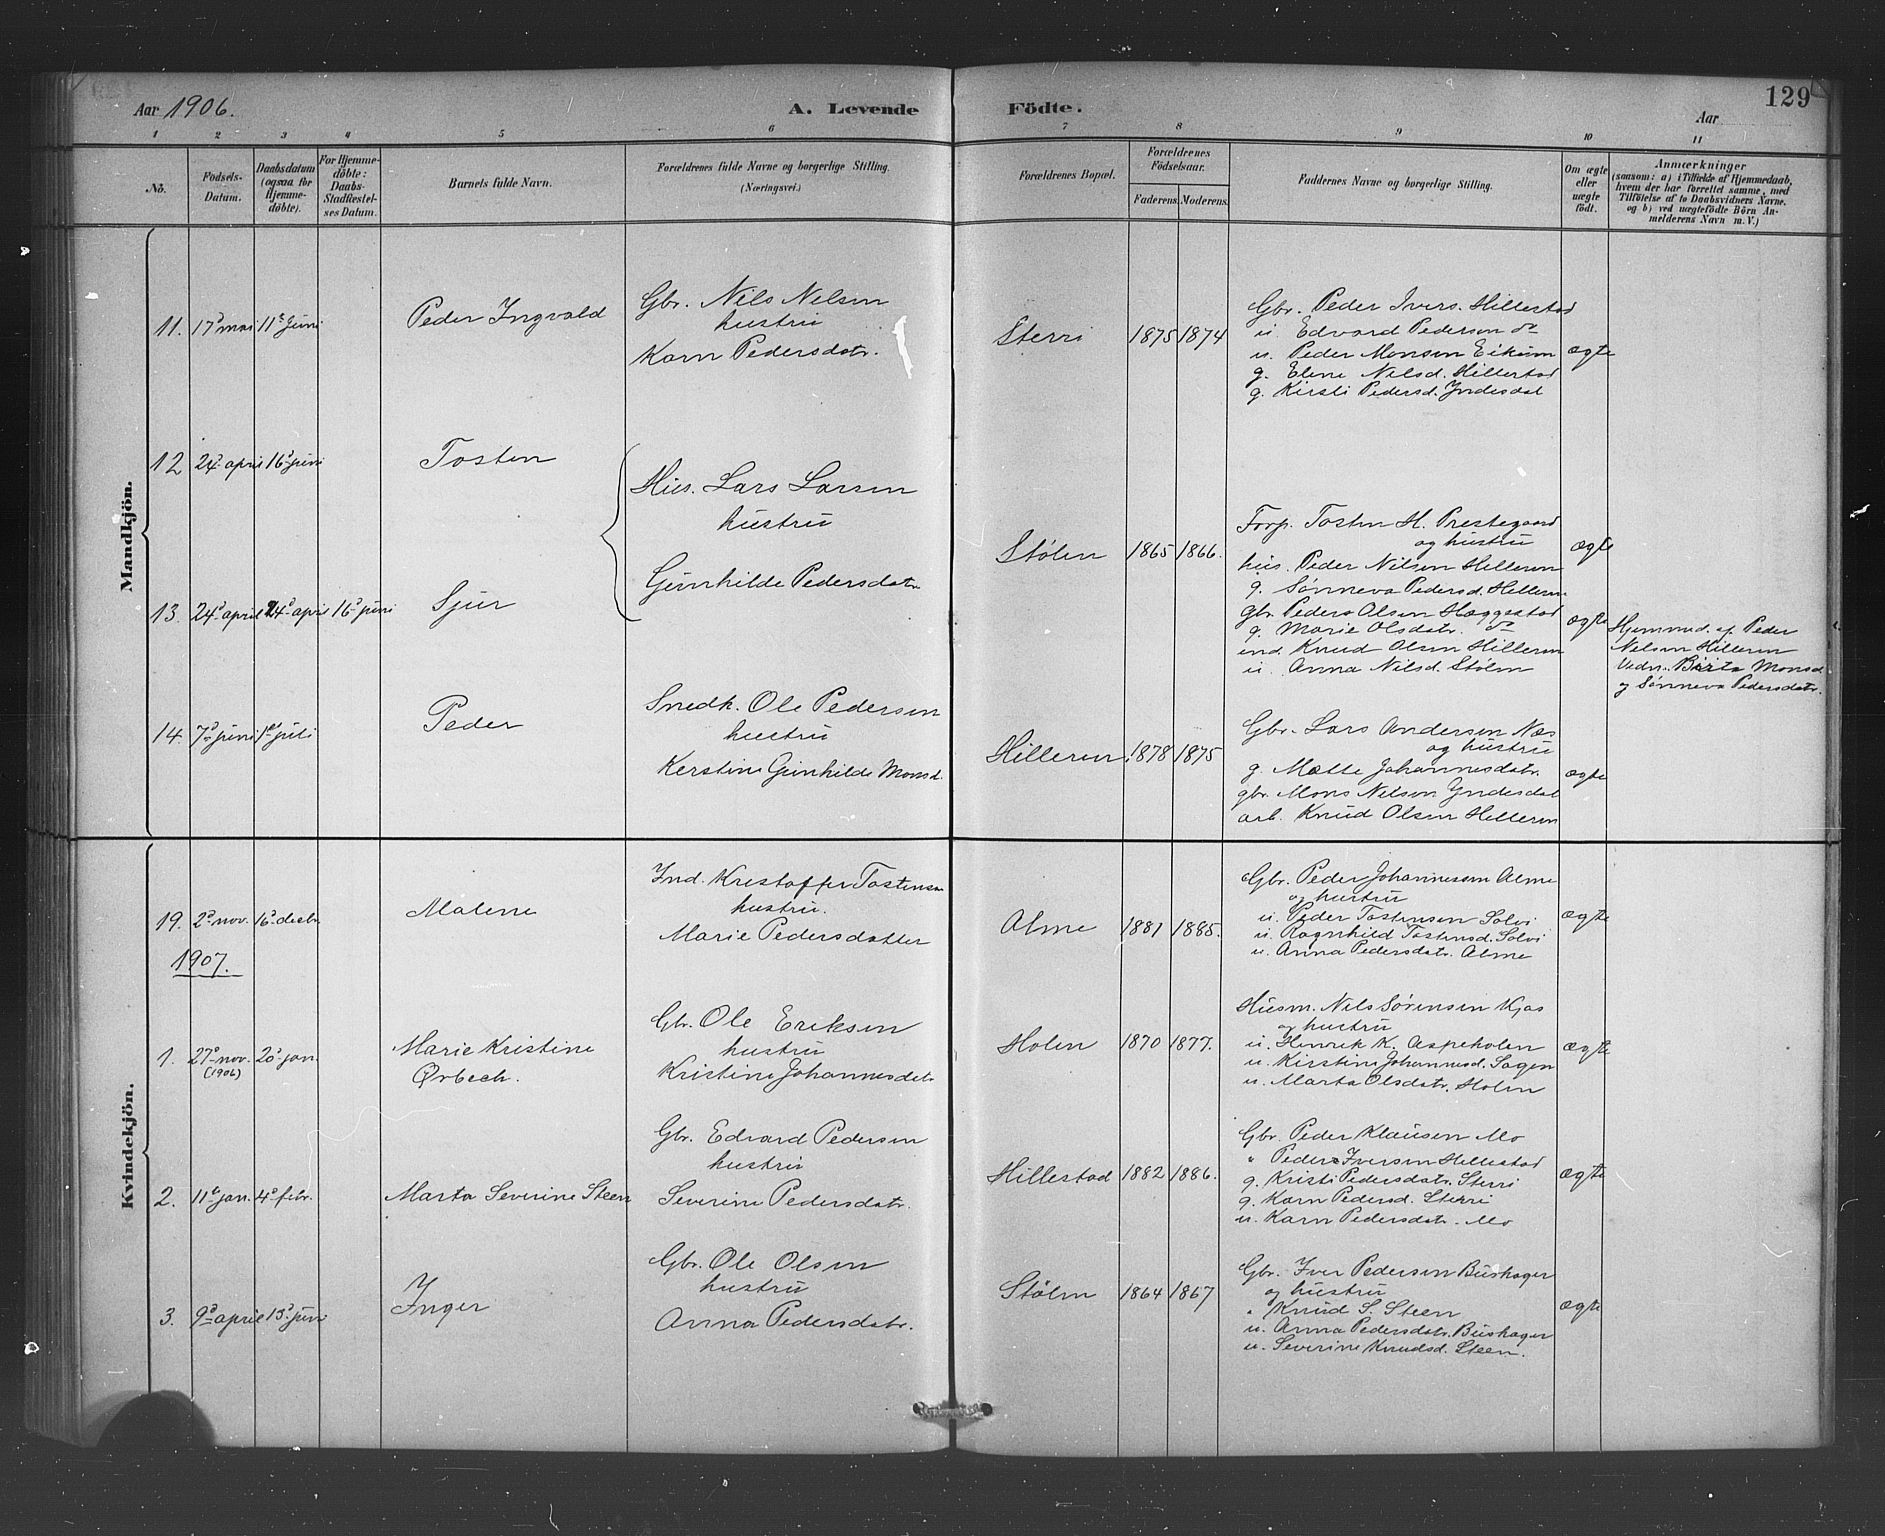 Aar 1906.
A. Levende Födte.
129
Aar
1 2 3 4 5 6 7 8 9 10 11
No.
Fødsels-Datum.
Daabsdatum (ogsaa for Hjemme-døbte).
For Hjemme-døbte: Daabs-Stadfæstel-ses Datum.
Barnets fulde Navn.
Forældrenes fulde Navne og borgerlige Stilling. (Næringsvei.)
Forældrenes Bopæl.
Forældrenes Födselsaar.
Faderens. Moderens.
Faddernes Navne og borgerlige Stilling.
Om ægte eller uægte født.
Anmærkninger
(saasom: a) i Tilfælde af Hjemmedaab, hvem der har forrettet samme, med Tilføielse af to Daabsvidners Navne, og b) ved uægtefødte Børn An-melderens Navn m. V.)
Mandkjön.
11. 17de mai 11te juni
Peder Ingvald
Gbr. Nils Nelsen
hustru
Karn Pedersdatr.
Sterri
1875 1874
Gbr. Peder Ivers. Hillestad
u. Edvard Pedersen do
u. Peder Monsen Eikum
g. Eline Nilsd. Hillestad
g. Kirsti Pedersd. Yndesdal
ægte
12 24de april 16de juni
Tosten
Hus. Lars Larsen
hustru
Gunhilde Pedersdatr.
Stølen
1865 1866.
Forp. Tosten H. Prestegaard
og hustru
hus. Peder Nilsen Hilleren
g. Sønneva Pedersd. Hilleren
ægte
13. 24de april 24de april 16de juni
Sjur
gbr. Peder Olsen Hæggestad
g. Marie Olsdatr. do
ind. Knud Olsen Hilleren
u. Anna Nilsd. Stølen
ægte
Hjemmed. af Peder
Nelsen Hilleren
Vidn. Birta Monsd.
og Sønneva Pedersdatr.
14. 7de juni 1ste juli
Peder
Snedk. Ole Pedersen
hustru
Kerstine Gunhilde Monsd.
Hilleren
1878 1875
Gbr. Lars Andersen Næs
og hustru
g. Mette Johannesdatr.
gbr. Mons Nelsen Yndesdal
arb. Knud Olsen Hilleren
ægte
Kvindekjön.
19. 2de nov. 16de decbr.
Malene
Ind. Kristoffer Tostensen
hustru.
Marie Pedersdatter
Alme
1881 1885.
Gbr. Peder Johannesen Alme
og hustru
u. Peder Tostensen Solvi
u. Ragnhild Tostensd. Solvi
u. Anna Pedersdatr. Alme
ægte
1907.
1. 27de nov. (1906) 20de jan.
Marie Kristine
Ørbech.
Gbr. Ole Eriksen
hustru
Kristine Johannesdatr.
Holen
1870 1877.
Husm. Nils Sørensen Kjos
og hustru
u. Henrik K. Aspeholen
u. Kirstine Johannesd. Sagen
u. Marta Olsdatr. Holen
ægte
2. 11te jan. 4de febr.
Marta Severine Steen
Gbr. Edvard Pedersen
hustru
Severine Pedersdatr.
Hillestad
1882 1886.
Gbr. Peder Klausen Mo
" Peder Iversen Hillestad
g. Kristi Pedersdatr. Sterri
g. Karn Pedersd. Sterri
u. Karn Pedersdatr. Mo
ægte
3. 9de april 13de juni
Inger
Gbr. Ole Olsen
hustru
Anna Pedersdatr.
Stølen
1864 1867
Gbr. Iver Pedersen Buskager
og hustru
" Knud S. Steen
u. Anna Pedersdatr. Buskager
u. Severine Knudsd. Steen.
ægte